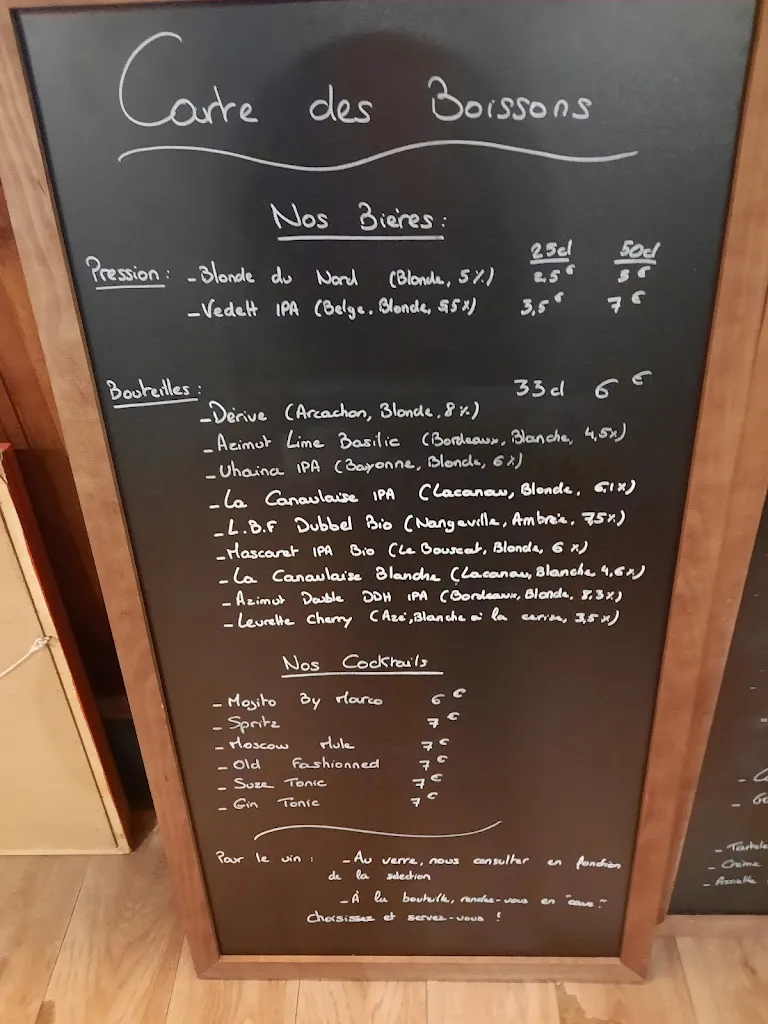 Carte des Boissons
Nos Bières :
25cl 50cl
Pression : - Blonde du Nord (Blonde, 5%) 2,5€ 5€
- Vedett IPA (Belge, Blonde, 5,5%) 3,5€ 7€
Bouteilles : 33cl 6€
- Dérive (Arcachon, Blonde, 8%)
- Azimut Lime Basilic (Bordeaux, Blanche, 4,5%)
- Uhaina IPA (Bayonne, Blonde, 6%)
- La Canaulaise IPA (Lacanau, Blonde, 6,1%)
- L.B.F Dubbel Bio (Nangeville, Ambrée, 7,5%)
- Mascaret IPA Bio (Le Bouscat, Blonde, 6%)
- La Canaulaise Blanche (Lacanau, Blanche 4,6%)
- Azimut Double DDH IPA (Bordeaux, Blonde, 8,3%)
- Leurette Cherry (Azé, Blanche à la cerise, 3,5%)
Nos Cocktails
- Mojito By Marco 6€
- Spritz 7€
- Moscow Mule 7€
- Old Fashionned 7€
- Suze Tonic 7€
- Gin Tonic 7€
Pour le vin : - Au verre, nous consulter en fonction
de la sélection
- À la bouteille, rendez-vous en "cave".
Choisissez et servez-vous !
- Crème
- Assiette